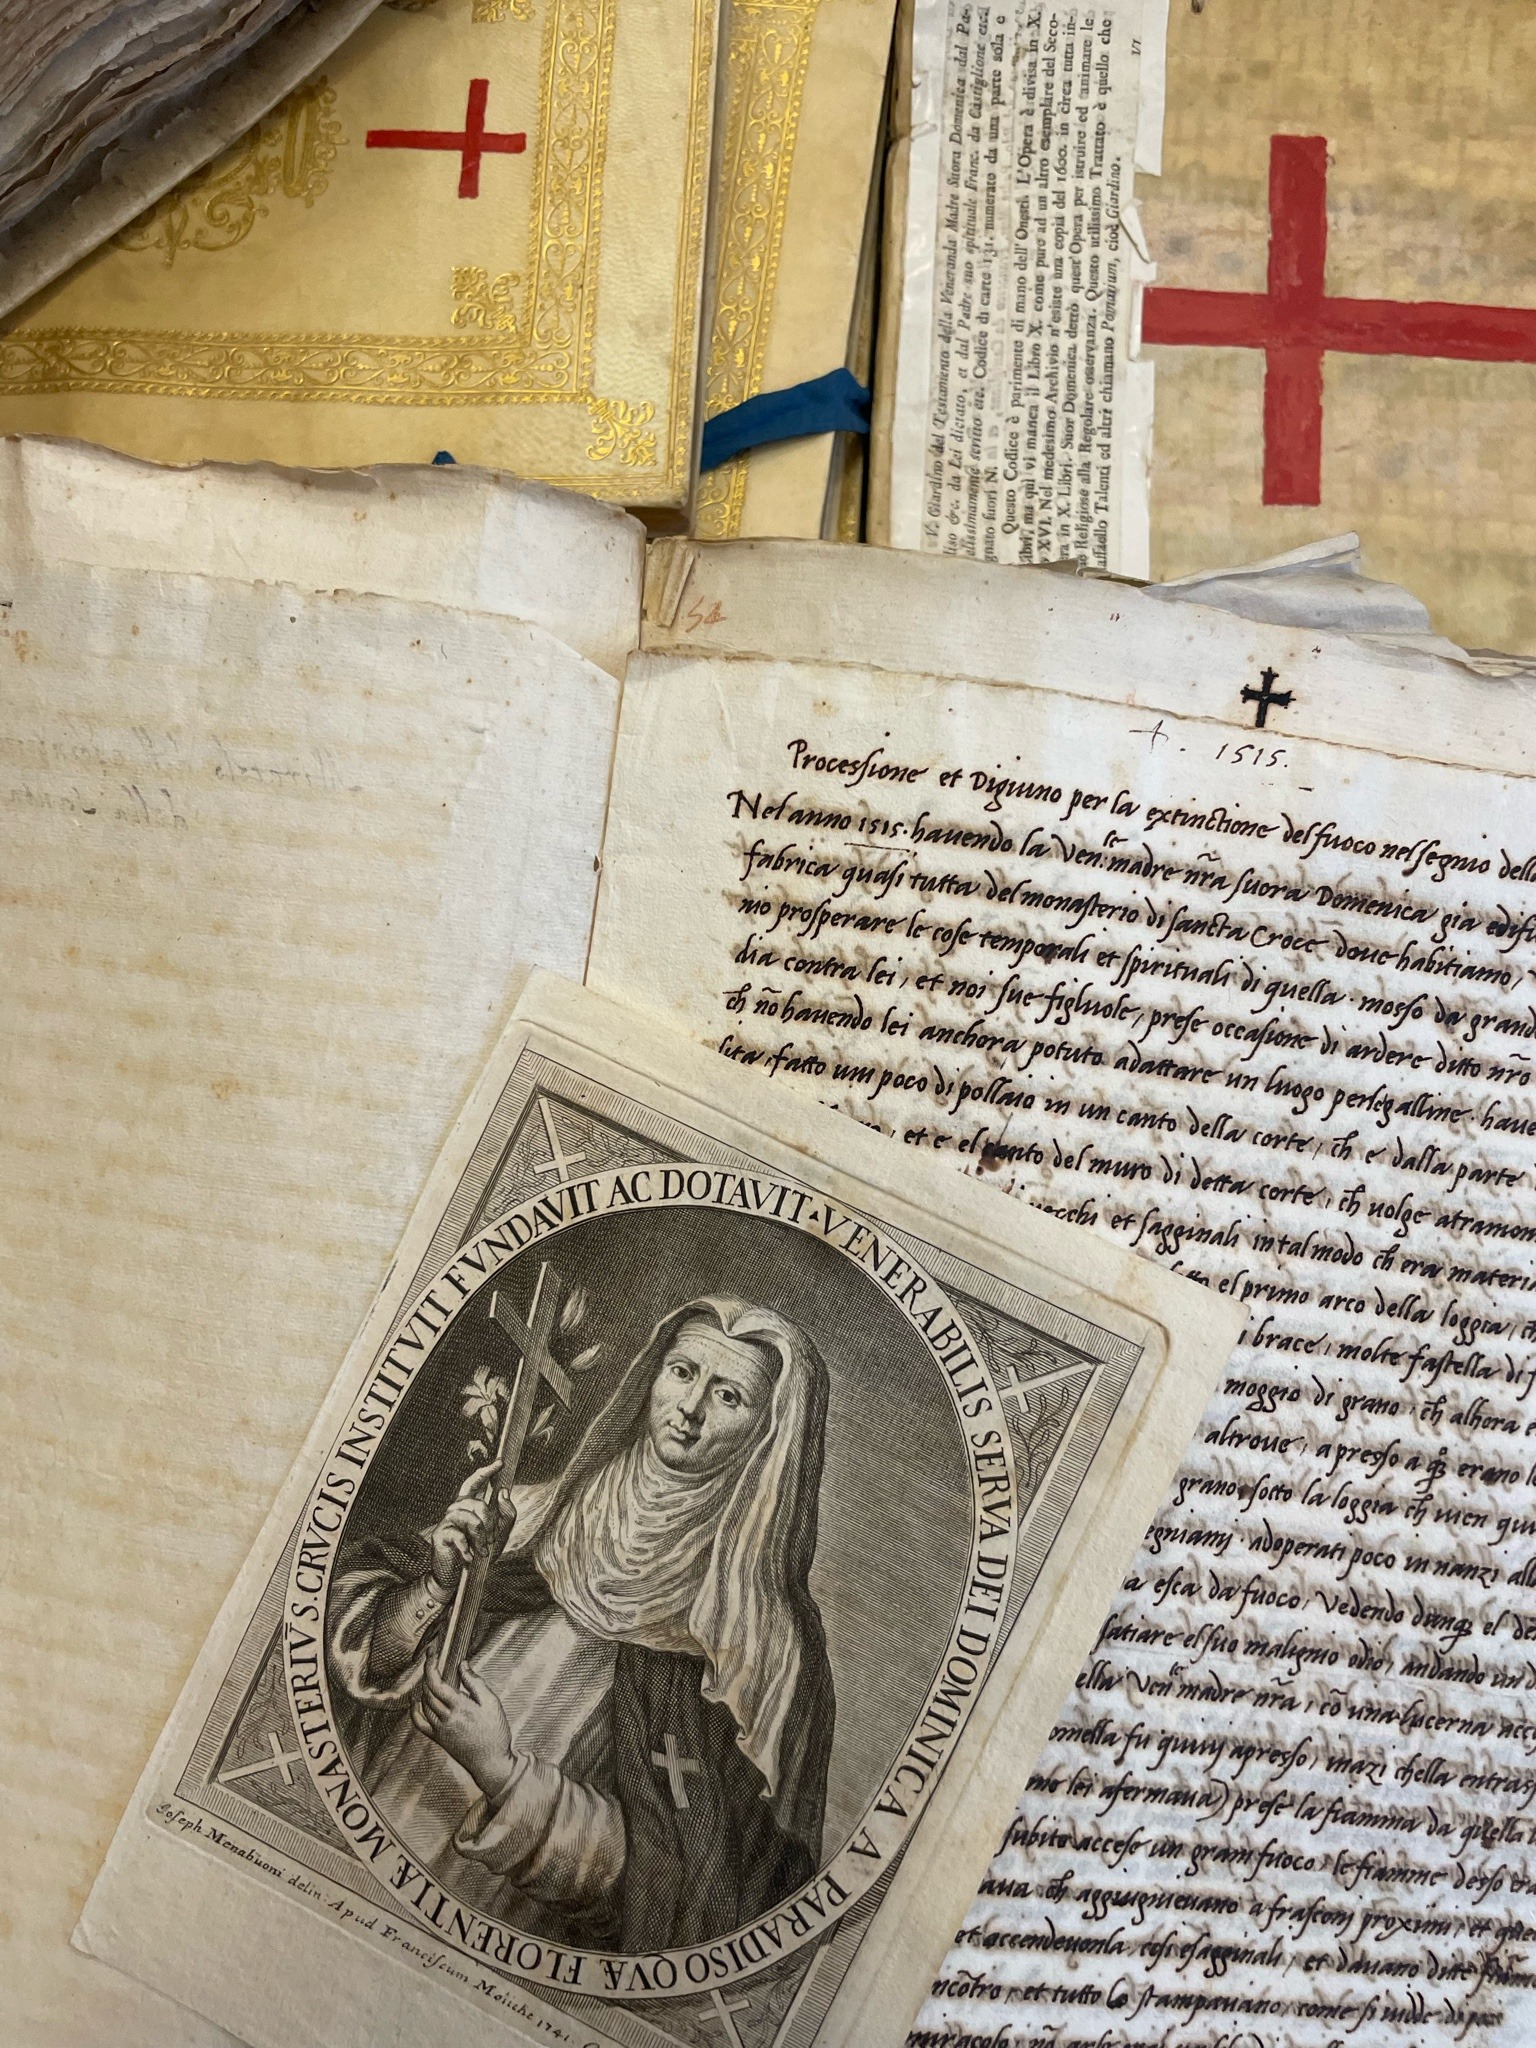 V. Giardino del Testamento della Veneranda Madre Suora Domenica dal Pa-
diso &c. da Lei dictato, et dal Padre suo spirituale Franc. da Castiglione
scritto etc. Codice di carte 131. numerato da una parte sola e
gnato fuori N.
Questo Codice è parimente di mano dell'Onesti. L'Opera è divisa in X.
Libri, ma quì vi manca il Libro X. come pure ad un altro esemplare del Seco-
XVI. Nel medesimo Archivio n'esiste una copia del 1600. in circa tutta in-
ra in X. Libri. Suor Domenica dettò quest'Opera per istruire ed animare le
Religiose alla Regolare osservanza. Questo utilissimo Trattato è quello che
affaello Talenti ed altri chiamano Pomarium, cioè Giardino.
52
1515.
Processione et Digiuno per la extinctione del fuoco nel segnio della
Nel anno 1515. havendo la Ven:le madre nr̃a suora Domenica gia edifi
fabrica quasi tutta del monasterio di sancta Croce dove habitiamo,
nio prosperare le cose temporali et spirituali di quella. mosso da grand
dia contra lei, et noi sue figluole, prese occasione di ardere ditto nr̃o
ch̃ nõ havendo lei anchora potuto adattare un luogo per le galline. have
lita, fatto um poco di pollaio in un canto della corte, ch̃ e dalla parte
et e el canto del muro di detta corte, ch̃ volge atramon
vecchi et sagginali in tal modo ch̃ era materia
el primo arco della loggia, ch̃
brace, molte fastella di
moggio di grano, ch̃ alhora
altrove, apresso a erano
grano, sotto la loggia ch̃ vien
adoperati poco in nanzi
esca da fuoco, Vedendo dunq̃ el
satiare el suo malignio odio, andando un
ella Ven:le madre nr̃a, cõ una lucerna
fu quivi apresso, inãzi chella entras
lei afermava) prese la fiamma da quella
subito accese un gram fuoco, le fiamme desso
ava ch̃ aggiugnievano a frasconi proximi, et
et accendevonla, cosi e sagginali, et davano ditte
ncõtro, et tutto lo stampavano, come si vidde di poi
miracolo,
MONASTERIV̄ S. CRVCIS INSTITVIT FVNDAVIT AC DOTAVIT · VENERABILIS SERVA DEI DOMINICA A PARADISO QVÆ FLORENTIÆ
Joseph Menabuoni delin: Apud Franciscum Moücke 1741.